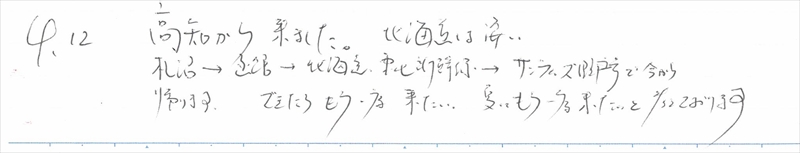 4.12 高知から来ました。北海道は寒い
札沼→函館→北海道、東北新幹線→サンライズ瀬戸号で今から
帰ります。 できたらもう一度来たい。 もう一度来たいと っております